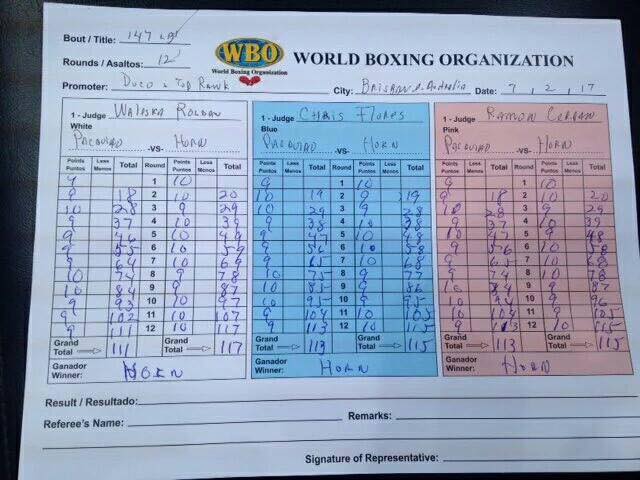 Bout / Title: 147 LBS
Rounds / Asaltos: 12
WBO
World Boxing Organization
WORLD BOXING ORGANIZATION
Promoter: DUCO & TOP RANK City: BRISBANE, Australia Date: 7, 2, 17
1 - Judge WALESKA ROLDAN
White
PACQUIAO -VS- HORN
Points Puntos Less Menos Total Round Points Puntos Less Menos Total
9 1 10
9 18 2 10 20
10 28 3 9 29
9 37 4 10 39
9 46 5 10 49
9 55 6 10 59
9 64 7 10 69
10 74 8 9 78
10 84 9 9 87
9 93 10 10 97
9 102 11 10 107
9 111 12 10 117
Grand Total 111 Grand Total 117
Ganador Winner: HORN
1 - Judge CHRIS FLORES
Blue
PACQUIAO -VS- HORN
Points Puntos Less Menos Total Round Points Puntos Less Menos Total
9 1 10
10 19 2 9 19
10 29 3 9 28
9 38 4 10 38
9 47 5 10 48
9 56 6 10 58
9 65 7 10 68
10 75 8 9 77
10 85 9 9 86
10 95 10 9 95
9 104 11 10 105
9 113 12 10 115
Grand Total 113 Grand Total 115
Ganador Winner: HORN
1 - Judge RAMON CERDAN
Pink
PACQUIAO -VS- HORN
Points Puntos Less Menos Total Round Points Puntos Less Menos Total
9 1 10
9 18 2 10 20
10 28 3 9 29
9 37 4 10 39
10 47 5 9 48
9 56 6 10 58
9 65 7 10 68
9 74 8 10 78
10 84 9 9 87
10 94 10 9 96
10 104 11 9 105
9 113 12 10 115
Grand Total 113 Grand Total 115
Ganador Winner: HORN
Result / Resultado:
Referee's Name: Remarks:
Signature of Representative: